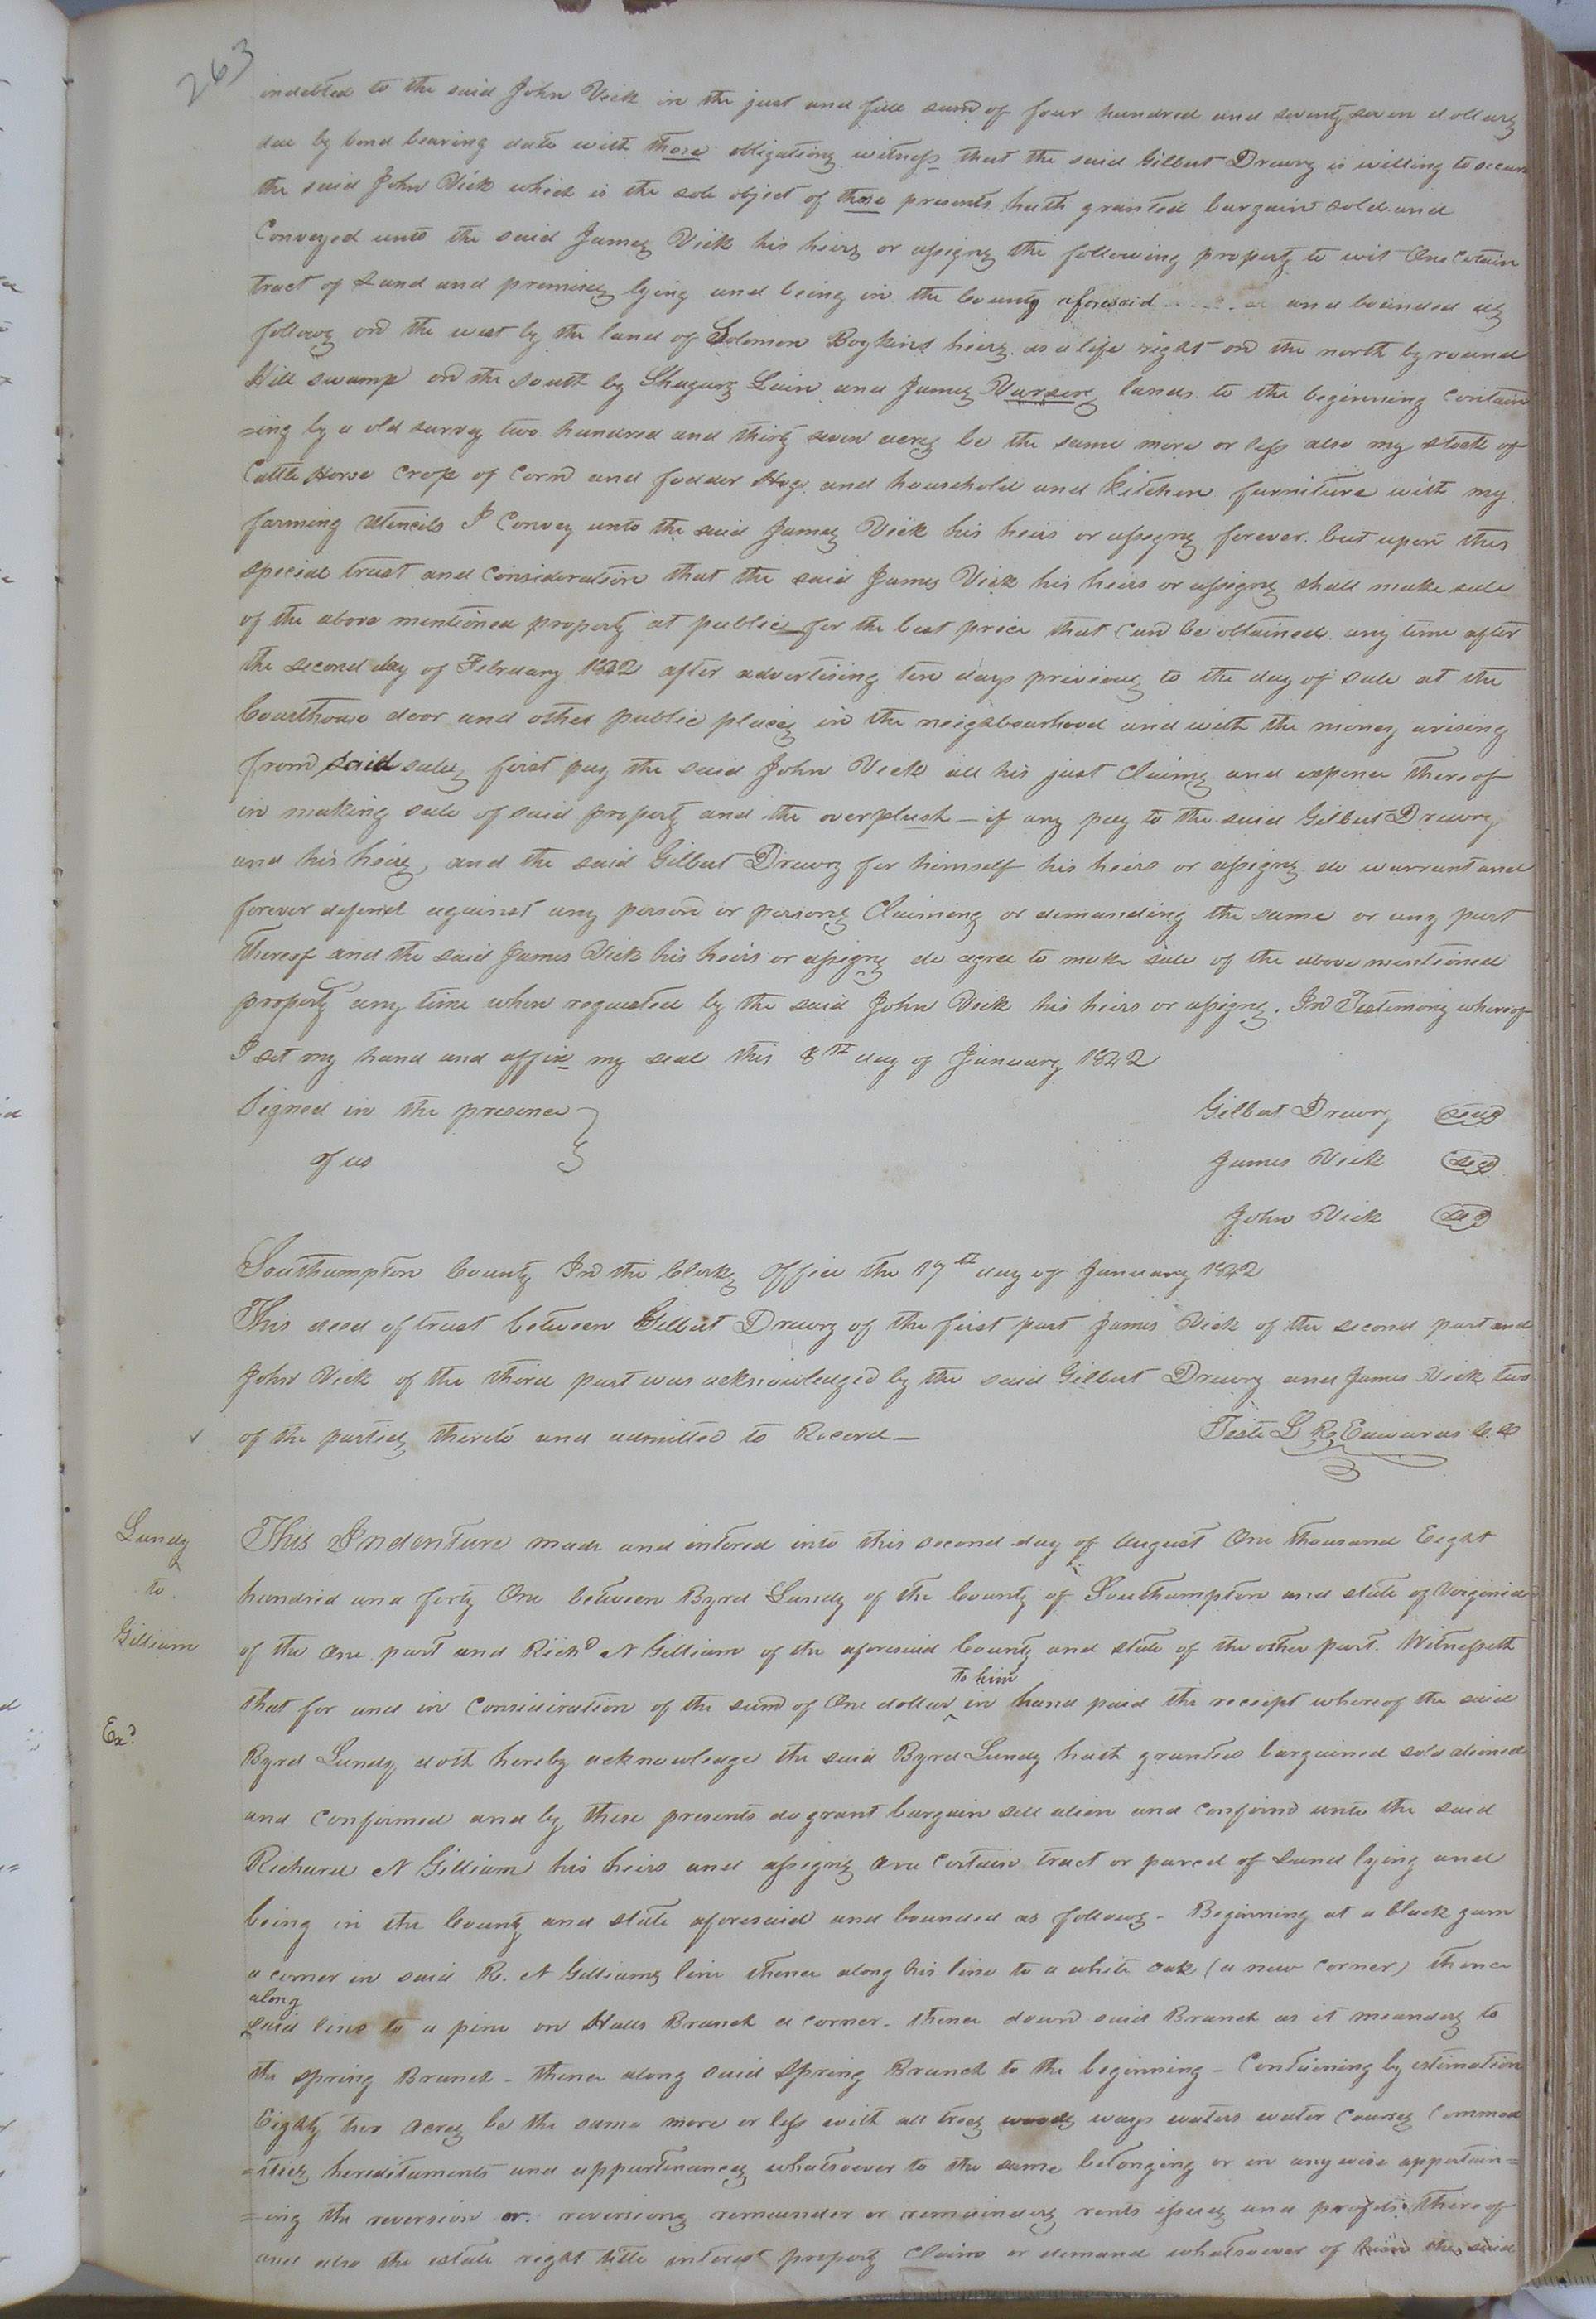 263
indebted to the said John Vick in the just and full sum of four hundred and seventy seven dollars
due by bond bearing date with these obligations witness that the said Gilbert Drewry is willing to secure
the said John Vick which is the sole object of these presents hath granted bargain sold and
Conveyed unto the said James Vick his heirs or assigns the following property to wit One Certain
tract of Land and premises lying and being in the County aforesaid and bounded as
follows on the west by the land of Solomon Boykins heirs as a life right on the north by round
Hill swamp on the south by Shugars Lain and James lands to the beginning Contain
=ing by a old survey two hundred and thirty seven acres be the same more or less also my stock of
Cattle Horse Crop of Corn and fodder Hogs and household and kitchen furniture with my
farming Utencils I Convey unto the said James Vick his heirs or assigns forever but upon this
special trust and Consideration that the said James Vick his heirs or assigns shall make sale
of the above mentioned property at public for the best price that can be obtained any time after
the second day of February 1842 after advertising ten days previous to the day of sale at the
Courthouse door and other public places in the neighbourhood and with the money arising
from said sales first pay the said John Vick all his just Claims and expence thereof
in making sale of said property and the overplush - if any pay to the said Gilbert Drewry
and his heirs, and the said Gilbert Drewry for himself his heirs or assigns do warrant and
forever defend against any person or persons Claiming or demanding the same or any part
thereof and the said James Vick his heirs or assigns do agree to make sale of the above mentioned
property any time when requested by the said John Vick his heirs or assigns. In Testimony whereof
I set my hand and affix my seal this 8th day of January 1842
Signed in the presence } Gilbert Drewry seal
of us James Vick seal
John Vick seal
Southampton County In the Clerks Office the 17th day of January 1842
This deed of trust between Gilbert Drewry of the first part James Vick of the second part and
John Vick of the third part was acknowledged by the said Gilbert Drewry and James Vick two
of the parties thereto and admitted to Record - Teste L R Edwards C.C
Lundy
to
Gilliam
Exd
This Indenture made and intered into this second day of August One thousand Eight
hundred and forty One between Byrd Lundy of the County of Southampton and state of Virginia
of the One part and Richd N Gilliam of the aforesaid County and state of the other part. Witnesseth
that for and in Consideration of the sum of One dollar ^to him in hand paid the receipt whereof the said
Byrd Lundy doth hereby acknowledge the said Byrd Lundy hath granted bargained sold aliened
and Confirmed and by these presents do grant bargain sell alien and Confirm unto the said
Richard N Gilliam his heirs and assigns One Certain tract or parcel of Land lying and
being in the County and state aforesaid and bounded as follows - Beginning at a black gum
a corner in said R. N Gilliams line thence along his line to a white oak (a new Corner) thence
along said line to a pine on Halls Branch a corner - thence down said Branch as it meanders to
the spring Branch - thence along said Spring Branch to the beginning - Containing by estimation
Eighty two acres be the same more or less with all trees woods ways waters water Courses Commod
=ities hereditaments and appurtenances whatsoever to the same belonging or in any wise appertain=
=ing the reversion or reversions remainder or remainders rents issues and profits thereof
and also the estate right title interest property Claim or demand whatsoever of him the said